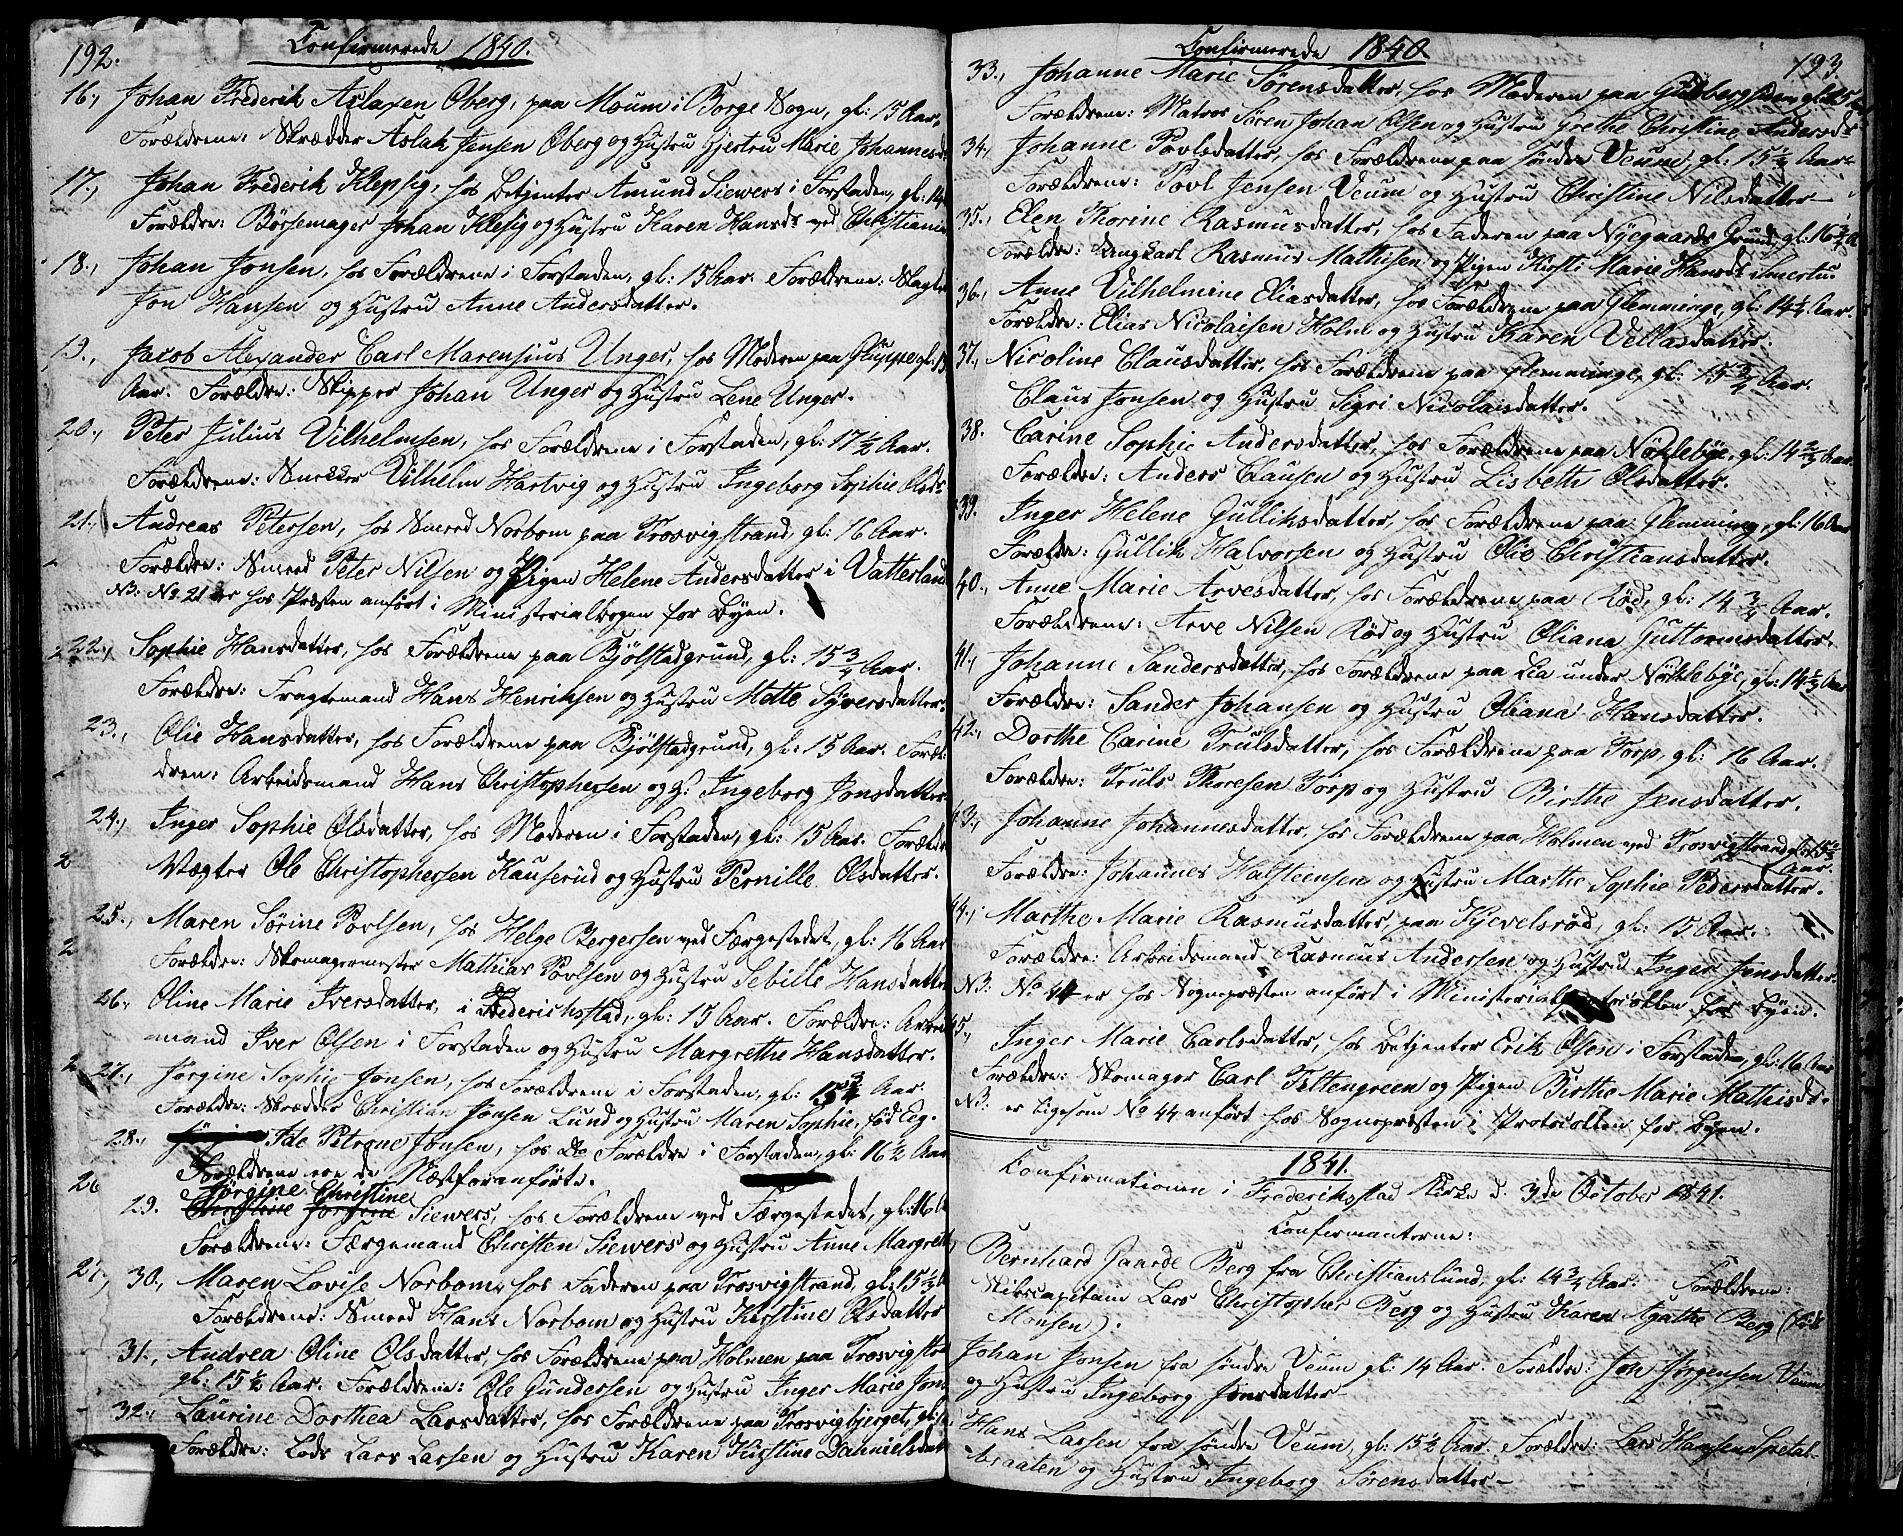 192.
Confirmerede 1840.
16., Johan Frederik Aslaksen Øberg, paa Moum i Borge Sogn, gl: 15 Aar,
Forældrene: Skrædder Aslak Jensen Øberg og Hustru Gjertru Marie Johannesd
17., Johan Frederik Klepsig, hos Betjenter Amund Siewers i Forstaden, gl: 14
Forældre: Børsemager Johan Klesig og Hustru Karen Hansd: ved Christiania
18., Johan Jonsen, hos Forældrene i Forstaden, gl: 15 Aar. Forældrene: Slagter
Jon Hansen og Hustru Anne Andersdatter.
19., Jacob Alexander Carl Marensius Unger, hos Moderen paa Gluppe, gl: 15
Aar. Forældre: Skipper Johan Unger og Hustru Lene Unger.
20., Peter Julius Vilhelmsen, hos Forældrene i Forstaden, gl: 17½ Aar.
Forældrene: Snekker Vilhelm Hartvig og Hustru Ingeborg Sophie Olsd:
21., Andreas Petersen, hos Smeed Norbom paa Trosvigstrand gl: 16 Aar.
Forældre: Smeed Peter Nilsen og Pigen Helene Andersdatter i Vatterland
NB: No 21 er hos Præsten anført i Ministerialbogen for Byen.
22., Sophie Hansdatter, hos Forældrene paa Bjølstadgrund, gl: 15¾ Aar.
Forældre: Fragtemand Hans Henriksen og Hustru Mette Syversdatter.
23., Olie Hansdatter, hos Forældrene paa Bjølstadgrund, gl: 15 Aar. Foræl-
dren: Arbeidsmand Hans Christophersen og H: Ingeborg Jonsdatter
24., Inger Sophie Olsdatter, hos Moderen i Forstaden, gl: 15 Aar. Forældr
Vægter Ole Christophersen Kauserud og Hustru Pernille Olsdatter.
25., Maren Sørine Povlsen, hos Helge Bergersen ved Færgestedet, gl: 16 Aar
Forældre: Skomagermester Mathias Povlsen og Hustru Sebille Hansdatter
26., Oline Marie Iversdatter, i Frederichsstad, gl: 15 Aar. Forældre: Arbei
mand Iver Olsen i Forstaden og Hustru Margrethe Hansdatter.
27., Jørgine Sophie Jonsen, hos Forældrene i Forstaden, gl: 15¾ Aar.
Forældre: Skrædder Christian Jonsen Lund og Hustru Maren Sophie, fød Lig.
28., Ide Petrone Jonsen, hos do Forældre i Forstaden, gl: 16½ Aar
Forældrene ere de Næstforanførte.
Jørgine Christine
29. Christine Siewers, hos Forældrene ved Færgestedet, gl: 16
Forældrene: Færgemand Christen Siewers og Hustru Anne Margreth
30., Maren Lovise Norbom, hos Faderen paa Trosvigstrand, gl: 15½
Forældrene: Smeed Hans Norbom og Hustru Kirstine Olsdatter
31., Andrea Oline Olsdatter, hos Forældrene paa Holmen paa Trosvigstra
gl: 15½ Aar. Forældrene: Ole Gundersen og Hustru Inger Marie Jons
32., Laurine Dorthea Larsdatter, hos Forældrene paa Trosvigbjerget, gl:
Forældre: Lods Lars Larsen og Hustru Karen Kirstine Danielsdat
193.
Confirmerede 1840
33., Johanne Marie Sørensdatter, hos Moderen paa Gudbergsien gl: 15 Aar
Forældrene: Matros Søren Johan Olsen og Hustru Grethe Christine Andersd:
34., Johanne Povlsdatter, hos Forældrene paa søndre Veum, gl: 15½ Aar
Forældrene: Povl Jensen Veum og Hustru Christine Nilsdatter
35., Elen Thorine Rasmusdatter, hos Faderen paa Nyegaards Grund, gl: 16¾ A
Forældre: Ungkarl Rasmus Mathisen og Pigen Kirsti Marie Hansd:
36., Anne Vilhelmine Eliasdatter, hos Forældrene paa Glemminge, gl: 14½ Aar.
Forældre: Elias Nicolaisen Holm og Hustru Karen Vellasdatter.
37., Nicoline Clausdatter, hos Forældrene paa Glemminge, gl: 15¾ Aar.
Claus Jonsen og Hustru Sigri Nicolaisdatter.
38. Carine Sophie Andersdatter, hos Forældrene paa Nøklebye, gl: 14¾ Aar.
Forældre: Anders Clausen og Hustru Lisbeth Olsdatter.
39. Inger Helene Gulliksdatter, hos Forældrene paa: Glemming, gl: 16 Aar
Forældre: Gullik Halvorsen og Hustru Olie Christiansdatter.
40., Anne Marie Arvesdatter, hos Forældrene paa Rød, gl: 14¾ Aar.
Forældrene: Arve Nilsen Rød og Hustru Oliana Guttormsdatter.
41., Johanne Sandersdatter, hos Forældrene paa Lia under Nøklebye, gl: 14¾ Aar
Forældre: Sander Johansen og Hustru Oliana Hansdatter.
42., Dorthe Carine Trulsdatter, hos Forældrene paa Torp, gl: 16 Aar.
Forældre: Truls Thoresen Torp og Hustru Birthe Jensdatter.
43., Johanne Johannesdatter, hos Forældrene paa Holmen ved Trosvigstrand gl: 15⅔
Aar.
Forældre: Johannes Halsteensen og Hustru Marthe Sophie Pedersdatter.
44., Marthe Marie Rasmusdatter, paa Kjevelsrød, gl: 15 Aar.
Forældre: Arbeidsmand Rasmus Andersen og Hustru Inger Jensdatter
NB: No 44 er hos Sognepræsten anført i Ministerial for Byen.
45., Inger Marie Carlsdatter, hos Betjenter Erik Olsen i Forstaden, gl: 16 Aar
Forældre: Skomager Carl Tettengreen og Pigen Birthe Marie Mathisd:
NB: er ligesom No 44 anført hos Sognepræsten i Protocollen for Byen.
1841.
Confirmationen i Frederikstad Kirke d. 3de October 1841.
Confirmanterne:
Bernhard Gaarde Berg fra Christianslund, gl: 14¾ Aar. Forældrene:
Skibscapitain Lars Christopher Berg og Hustru Karen Agathe Berg (født
Monsen).
Johan Jonsen fra søndre Veum gl: 14 Aar. Forældre: Jon Jørgensen Veum
og Hustru Ingeborg Jonsdatter
Hans Larsen fra søndre Veum, gl: 15½ Aar. Forældre: Lars Hansen Spetal-
braaten og Hustru Ingeborg Sørensdatter